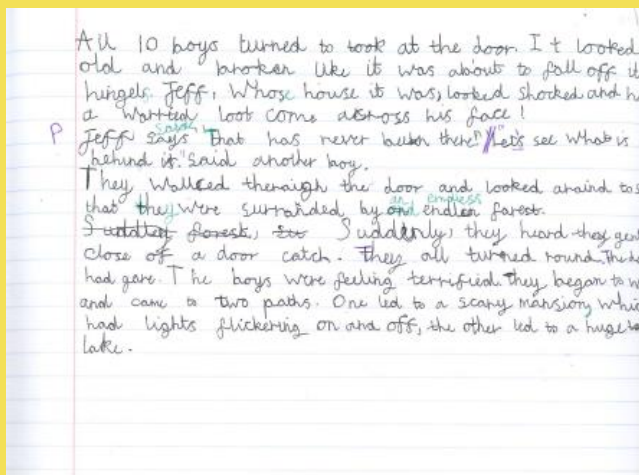 All 10 boys turned to look at the door. It looked
old and broken like it was about to fall off it
hingels. Jeff, whose house it was, looked shocked and h
a warried loot come across his face!
P Jeff says said, "That has never been there" "Let's see what is
behind it." said another boy.
They walked theraigh the door and looked araind to s
that they were surranded by and an endless farest.
Suddenly, they heard the gen
close of a door catch. They all turned round. The d
had gare. The boys were feeling terrified. They began to w
and came to two paths. One led to a scary mansion, whic
had lights flickering on and off, the other led to a huge
lake.